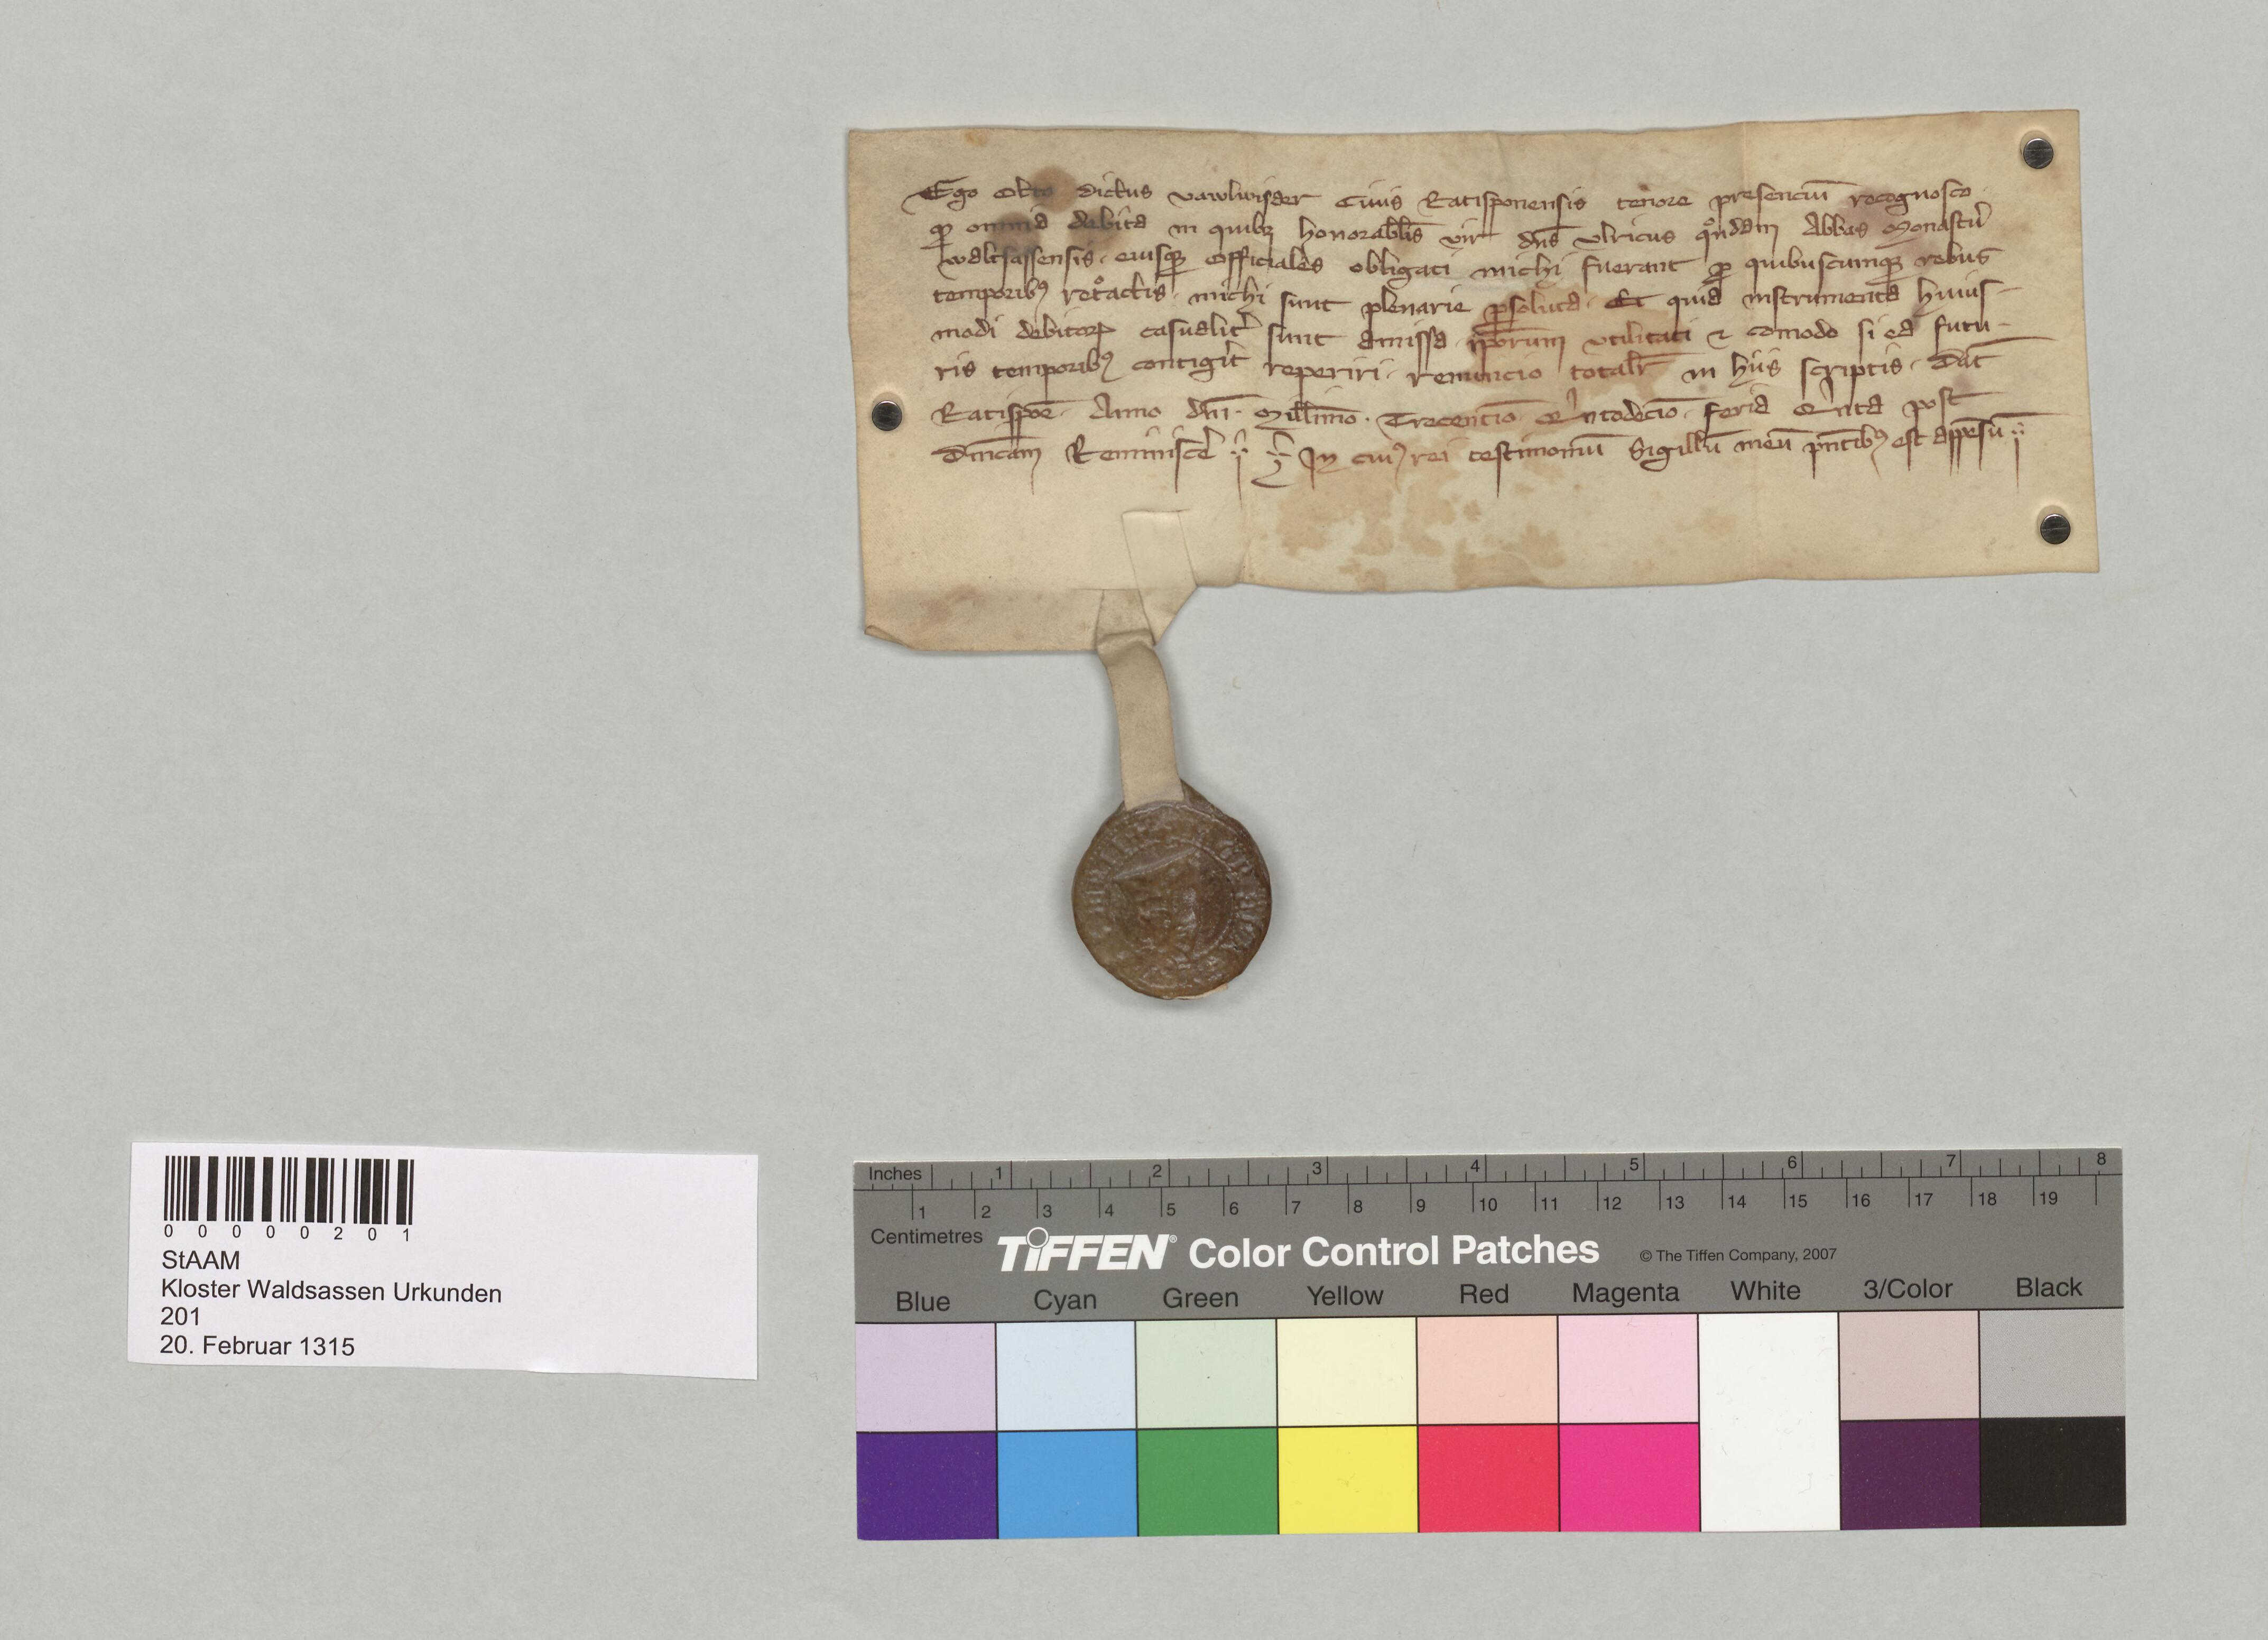 Ego Otto dictus vawlwisder Ciuis Ratisponensis tenore presenciū recognosco
ꝙ omnia debita in quibȝ honorabl̄is vir dn̄s vlricus qͦndam Abbas Monast'ii
waltsassensis · eiusqꝫ Officiales obligati michi fuerant ꝓ quibuscumqꝫ rebus
temporibꝰ ret°actis · michi sunt plenarie ꝑsoluta · Et quia instrumenta huius-
modi debitoꝝ casualit' sunt amissa · ip̄orum vtilitati ⁊ comodo si ea futu-
ris temporibꝰ contig'it reperiri · renuncio totalr̄ in hiis scriptis · Dat̄
Ratispon̄ · Anno dn̄i · Mill̄imo · Trecentīo Qͥntodecīo · feria Qͥnta post
Dn̄icam Reminiscē In cuiꝰ rei testimoniū Sigillū meū pn̄tibꝰ est appēsū
0 0 0 0 0 2 0 1
StAAM
Kloster Waldsassen Urkunden
201
20. Februar 1315
Inches 1 2 3 4 5 6 7 8
1 2 3 4 5 6 7 8 9 10 11 12 13 14 15 16 17 18 19
Centimetres
TIFFEN® Color Control Patches © The Tiffen Company, 2007
Blue Cyan Green Yellow Red Magenta White 3/Color Black